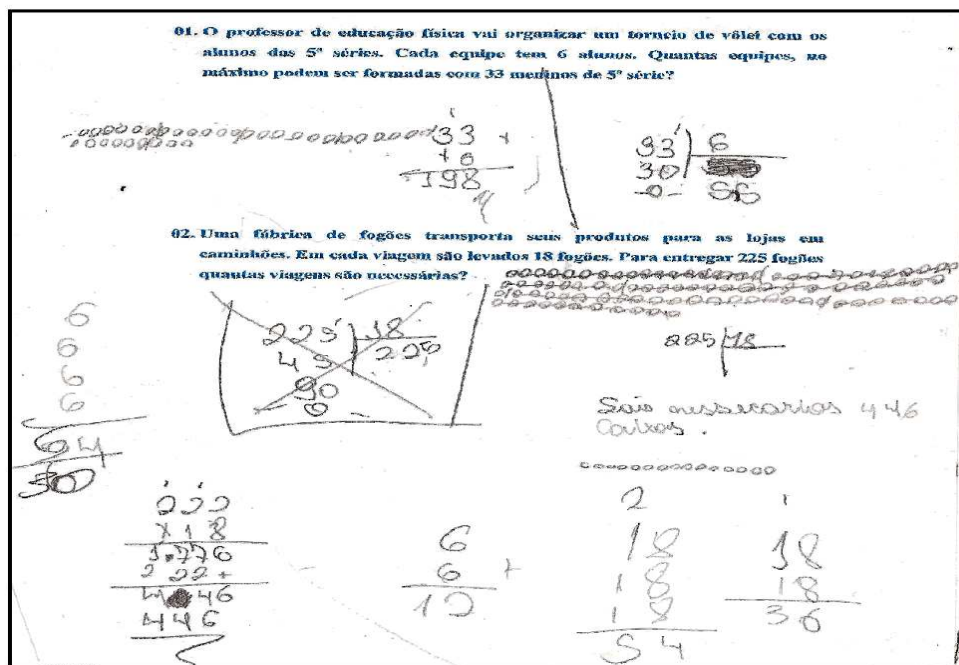 01. O professor de educação física vai organizar um torneio de vôlei com os
alunos das 5ª séries. Cada equipe tem 6 alunos. Quantas equipes, no
máximo podem ser formadas com 33 meninos de 5ª série?
33
198
33 6
30
5,5
02. Uma fábrica de fogões transporta seus produtos para as lojas em
caminhões. Em cada viagem são levados 18 fogões. Para entregar 225 fogões
quantas viagens são necessárias?
225 18
45 225
90
0
225 18
São nessecarios 446
Caixas.
6
6
6
6
30
222
x 18
1.776
222+
446
6
6 +
12
2
18
18
18
54
1
18
18
36